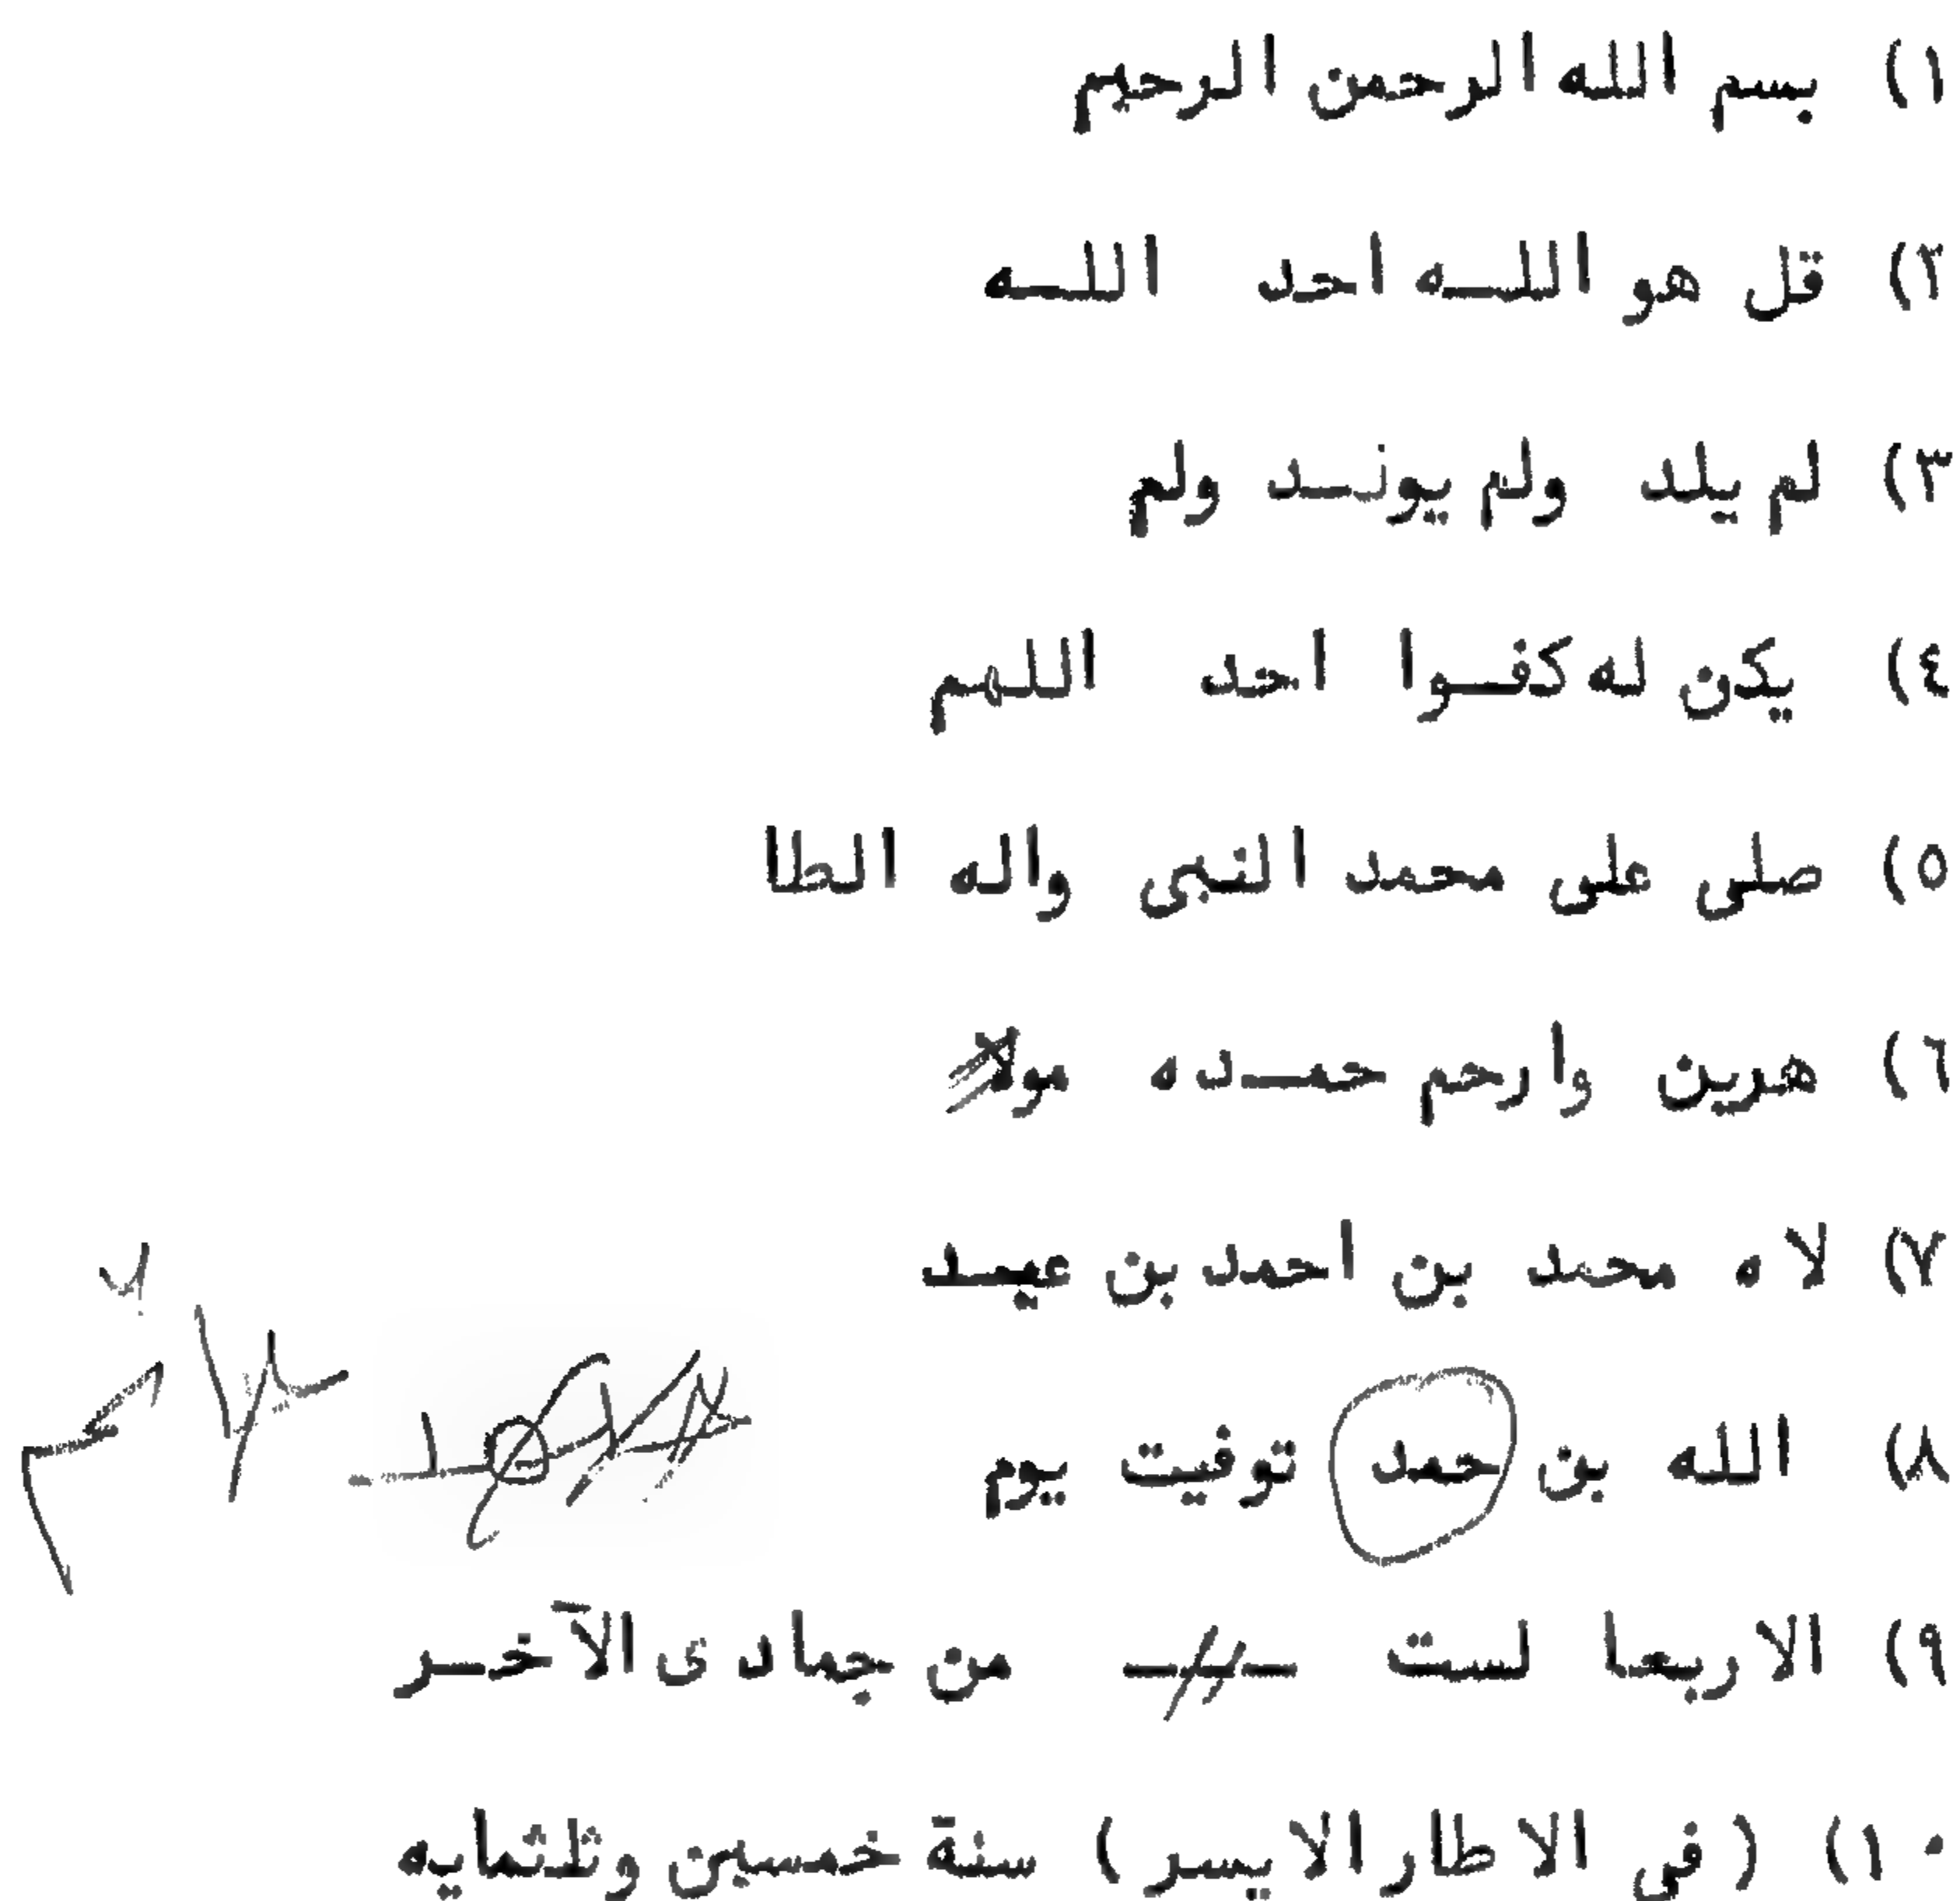 ١) بسم الله الرحمن الرحيم
٢) قل هو اللـه احد اللـه
٣) لم يلد ولم يولـد ولم
٤) يكن له كفـوا احد اللهم
٥) صلى على محمد النبى واله الطا
٦) هرين وارحم حمـده مو
٧) لاه محمد بن احمد بن عبيـد
٨) الله بن حمد توفيت يوم
٩) الاربعا لست من جمادى الآخـر
١٠) (فى الاطار الايسر) سنة خمسين وثلثمايه